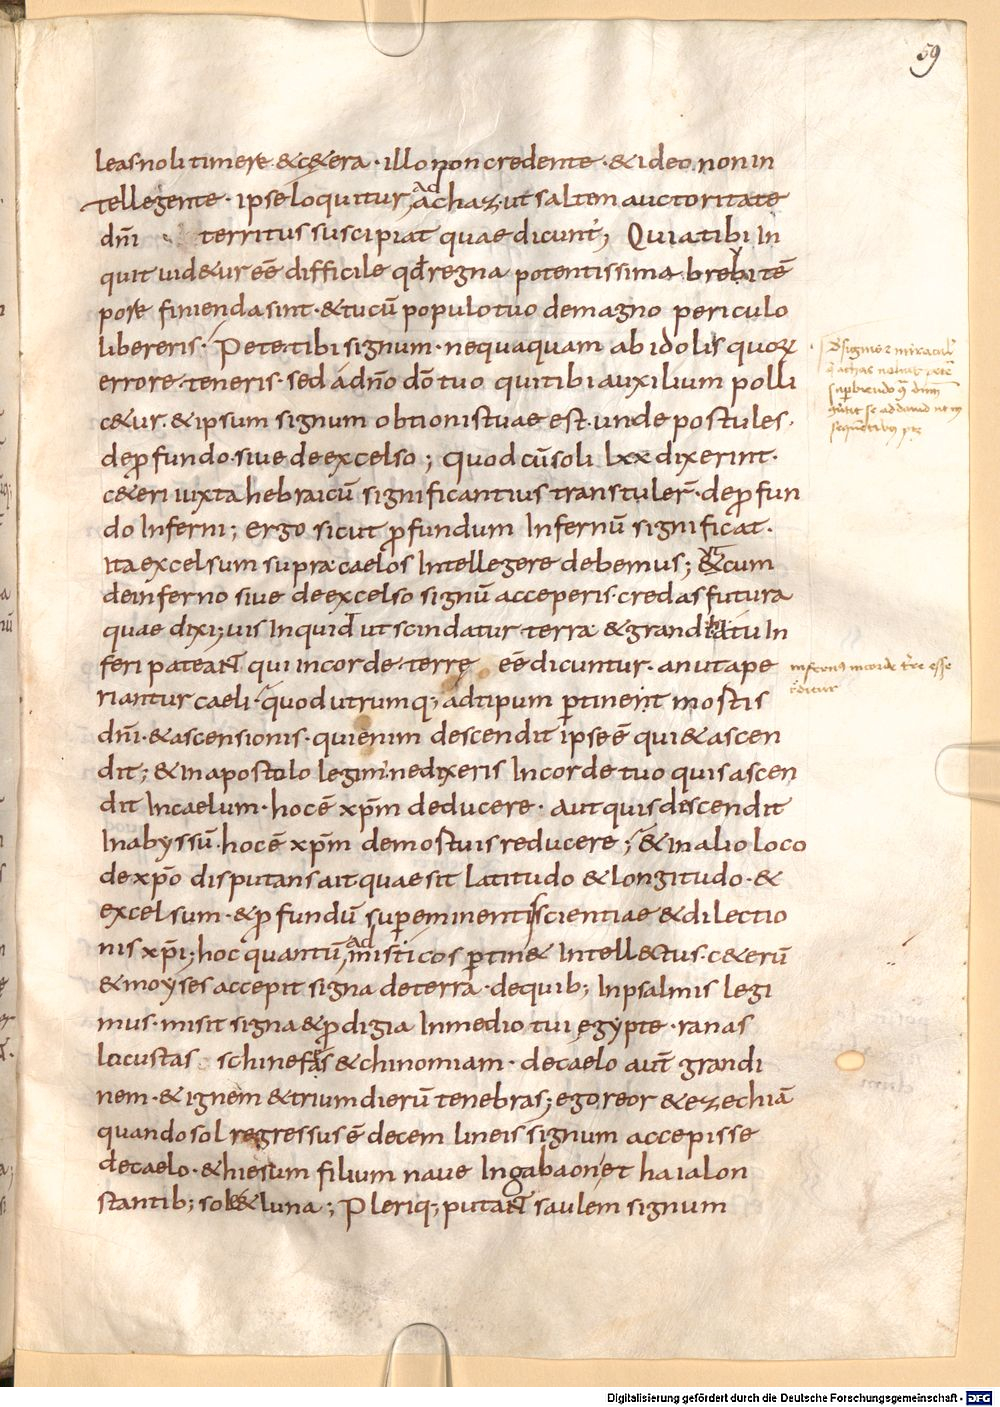 59
leas noli timere & c&era · illo non credente · & ideo non in
tellegente · ipse loquitur ad achaz · ut saltem auctoritate
dñi territus suscipiat quae dicunt᷑; Quia tibi In
quit uid&ur eē difficile qđ regna potentissima breui tē
pore finienda sint · & tu cū populo tuo de magno periculo
libereris · Pete tibi signum · nequaquam ab idolis quorꝝ
errore teneris · sed a dño dō tuo qui tibi auxilium polli
c&ur · & ipsum signum obtionis tuae est · unde postules ·
de ꝓfundo · siue de excelso ; quod cū soli lxx dixerint ·
c&eri iuxta hebraicū significantius transtuler̄ · de ꝓfun
do Inferni ; ergo sicut ꝓfundum Infernū significat ·
ita excelsum supra caelos Intellegere debemus ; & cum
de inferno siue de excelso signū acceperis · credas futura
quae dixi; uis Inquid ut scindatur terra & grandi hiatu In
feri pateant qui in corde terrę eē dicuntur · an ut ape
riantur caeli · quod utrumq; ad tipum ꝑtinent mostis
dñi · & ascensionis · qui enim descendit ipse ē qui & ascen
dit ; & in apostolo legim᷑ · ne dixeris In corde tuo quis ascen
dit In caelum · hoc ē xp̄m deducere · aut quis discendit
In abyssū · hoc ē xp̄m de mostuis reducere ; & in alio loco
de xp̄o disputans ait quae sit latitudo & longitudo · &
excelsum · & ꝓfundū supeminentis scientiae & dilectio
nis xp̄i; hoc quantū ad misticos ꝑtin& Intell&tus · c&erū
& moyses accepit signa de terra · de quib; In psalmis legi
mus · misit signa & ꝓdigia In medio tui egypte · ranas
locustas schinefas & chinomiam · de caelo aut̄ grandi
nem · & ignem & trium dierū tenebras; ego reor & ezechiā
quando sol regressus ē decem lineis signum accepisse
de caelo · & hiesum filium naue In gabaon et haialon
stantib; sole & luna ; Pleriq; putant saulem signum
infernus in corde terre esse
dicitur
Digitalisierung gefördert durch die Deutsche Forschungsgemeinschaft - DFG